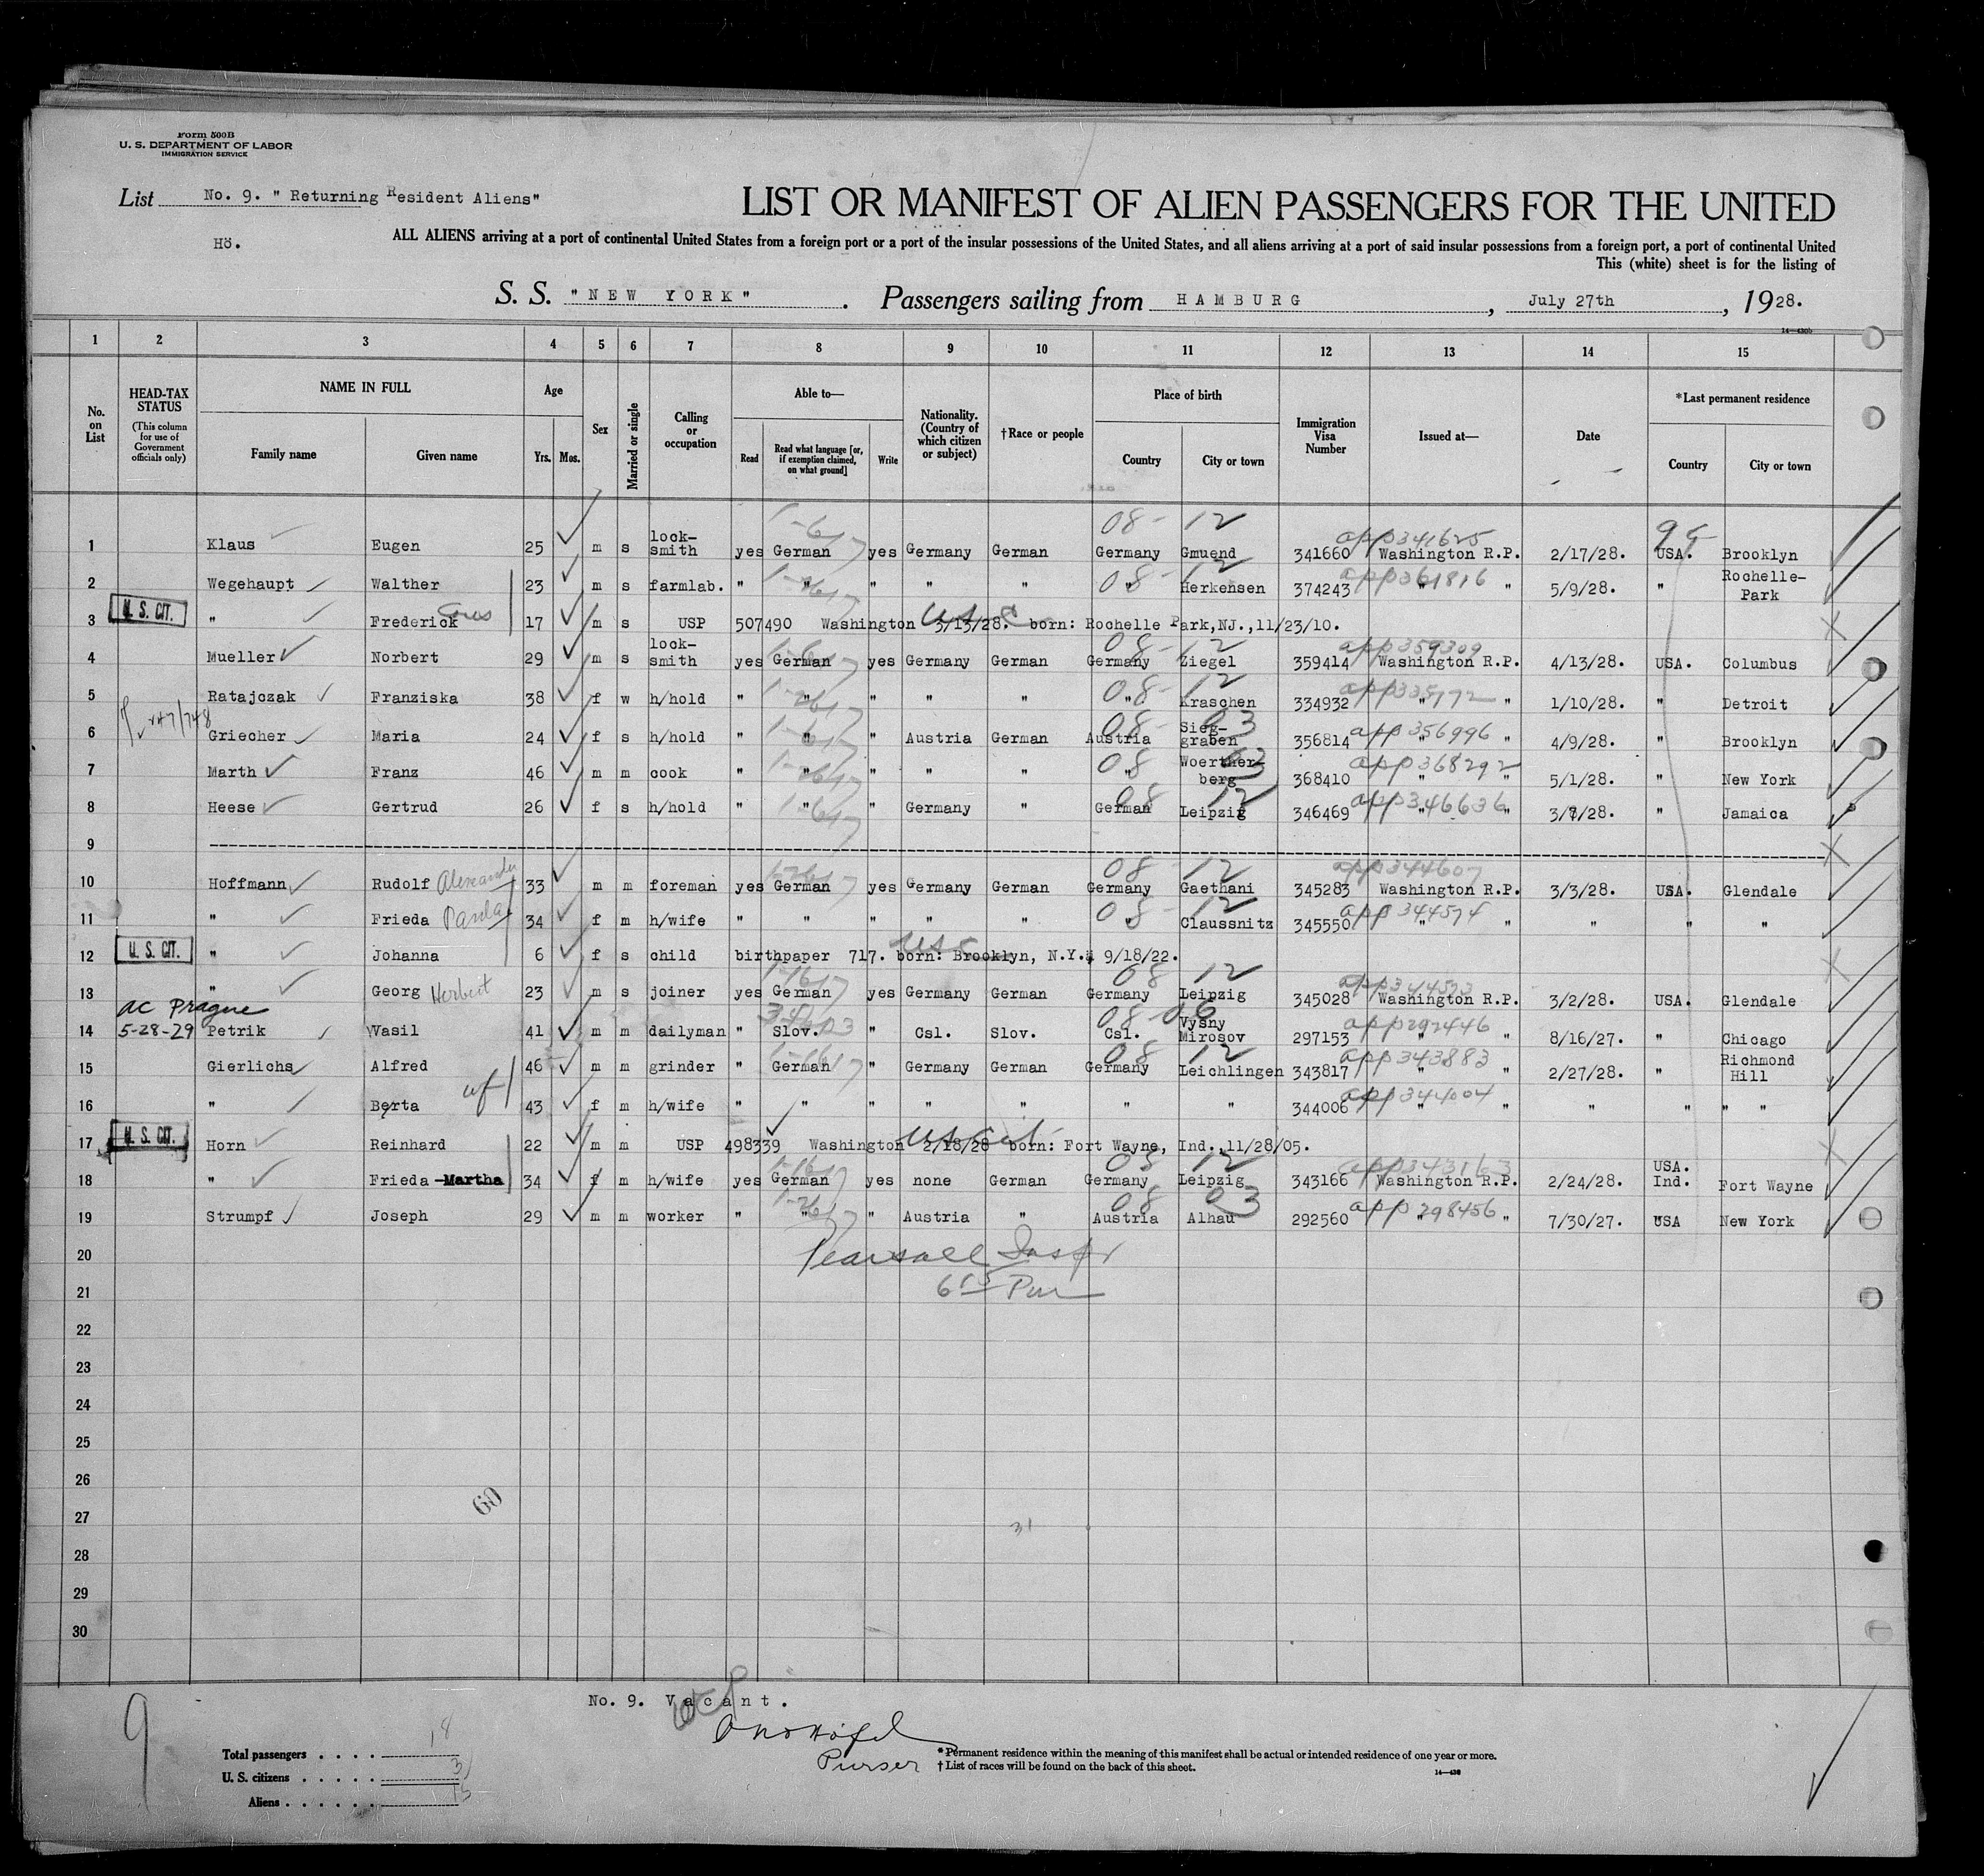 Form 500B
U. S. DEPARTMENT OF LABOR
IMMIGRATION SERVICE
List No. 9. " Returning Resident Aliens"
LIST OR MANIFEST OF ALIEN PASSENGERS FOR THE UNITED
Hö.
ALL ALIENS arriving at a port of continental United States from a foreign port or a port of the insular possessions of the United States, and all aliens arriving at a port of said insular possessions from a foreign port, a port of continental United
This (white) sheet is for the listing of
S. S. "NEW YORK". Passengers sailing from HAMBURG, July 27th, 1928.
14—430b
1 2 3 4 5 6 7 8 9 10 11 12 13 14 15
No. on List
HEAD-TAX STATUS (This column for use of Government officials only)
NAME IN FULL Family name Given name
Age Yrs. Mos.
Sex
Married or single
Calling or occupation
Able to— Read Read what language [or, if exemption claimed, on what ground] Write
Nationality. (Country of which citizen or subject)
†Race or people
Place of birth Country City or town
Immigration Visa Number
Issued at—
Date
*Last permanent residence Country City or town
08- 12 app 341625
1 Klaus Eugen 25 m s lock-smith yes German yes Germany German Germany Gmuend 341660 Washington R.P. 2/17/28. USA. Brooklyn
2 Wegehaupt Walther 23 m s farmlab. " " " " " 08 " 12 Herkensen 374243 app 361816 " " 5/9/28. " Rochelle-Park
3 U. S. CIT. " Frederick 17 m s USP 507490 Washington 3/13/28. born: Rochelle Park,NJ.,11/23/10.
08- 12 app 359309
4 Mueller Norbert 29 m s lock-smith yes German yes Germany German Germany Ziegel 359414 Washington R.P. 4/13/28. USA. Columbus
5 Ratajczak Franziska 38 f w h/hold " " " " " 08- " 12 Kraschen 334932 " " 1/10/28. " Detroit
6 Griecher Maria 24 f s h/hold " " " Austria German 08- Austria 03 Sieg-graben 356814 app 356996 " " 4/9/28. " Brooklyn
7 Marth Franz 46 m m cook " " " " " 08 " 03 Woerther-berg 368410 app 368292 " " 5/1/28. " New York
8 Heese Gertrud 26 f s h/hold " " " Germany " 08 German 12 Leipzig 346469 app 346636 " " 3/7/28. " Jamaica
9
08 12 app 344607
10 Hoffmann Rudolf Alexander 33 m m foreman yes German yes Germany German Germany Gaethani 345283 Washington R.P. 3/3/28. USA. Glendale
11 " Frieda Paula 34 f m h/wife " " " " " 08- " 12 Claussnitz 345550 app 344574 " " " " "
12 U. S. CIT. " Johanna 6 f s child birthpaper 717. born: Brooklyn, N.Y., 9/18/22.
08 12 app 344573
13 " Georg Herbert 23 m s joiner yes German yes Germany German Germany Leipzig 345028 Washington R.P. 3/2/28. USA. Glendale
ac Prague
14 5-28-29 Petrik Wasil 41 m m dailyman " Slov. " Csl. Slov. 08- Csl. 06 Vysny Mirosov 297153 app 292446 " " 8/16/27. " Chicago
15 Gierlichs Alfred 46 m m grinder " German " Germany German 08 Germany 12 Leichlingen 343817 app 343883 " " 2/27/28. " Richmond Hill
16 " Berta wf 43 f m h/wife " " " " " " " 344006 app 344004 " " " " " "
17 U. S. CIT. Horn Reinhard 22 m m USP 498339 Washington 2/18/28 US Cit born: Fort Wayne, Ind.,11/28/05.
08 12 app 343163
18 " Frieda -Martha 34 f m h/wife yes German yes none German Germany Leipzig 343166 Washington R.P. 2/24/28. USA. Ind. Fort Wayne
19 Strumpf Joseph 29 m m worker " " " Austria " 08 Austria 03 Alhau 292560 app 298456 " " 7/30/27. USA New York
20 Pearsall Inspr
21
22
23
24
25
26
27
28
29
30
60
31
No. 9. Vacant.
9
Purser
Total passengers . . . . 18
U. S. citizens . . . . . 3
Aliens . . . . . . 15
* Permanent residence within the meaning of this manifest shall be actual or intended residence of one year or more.
† List of races will be found on the back of this sheet.
14—430